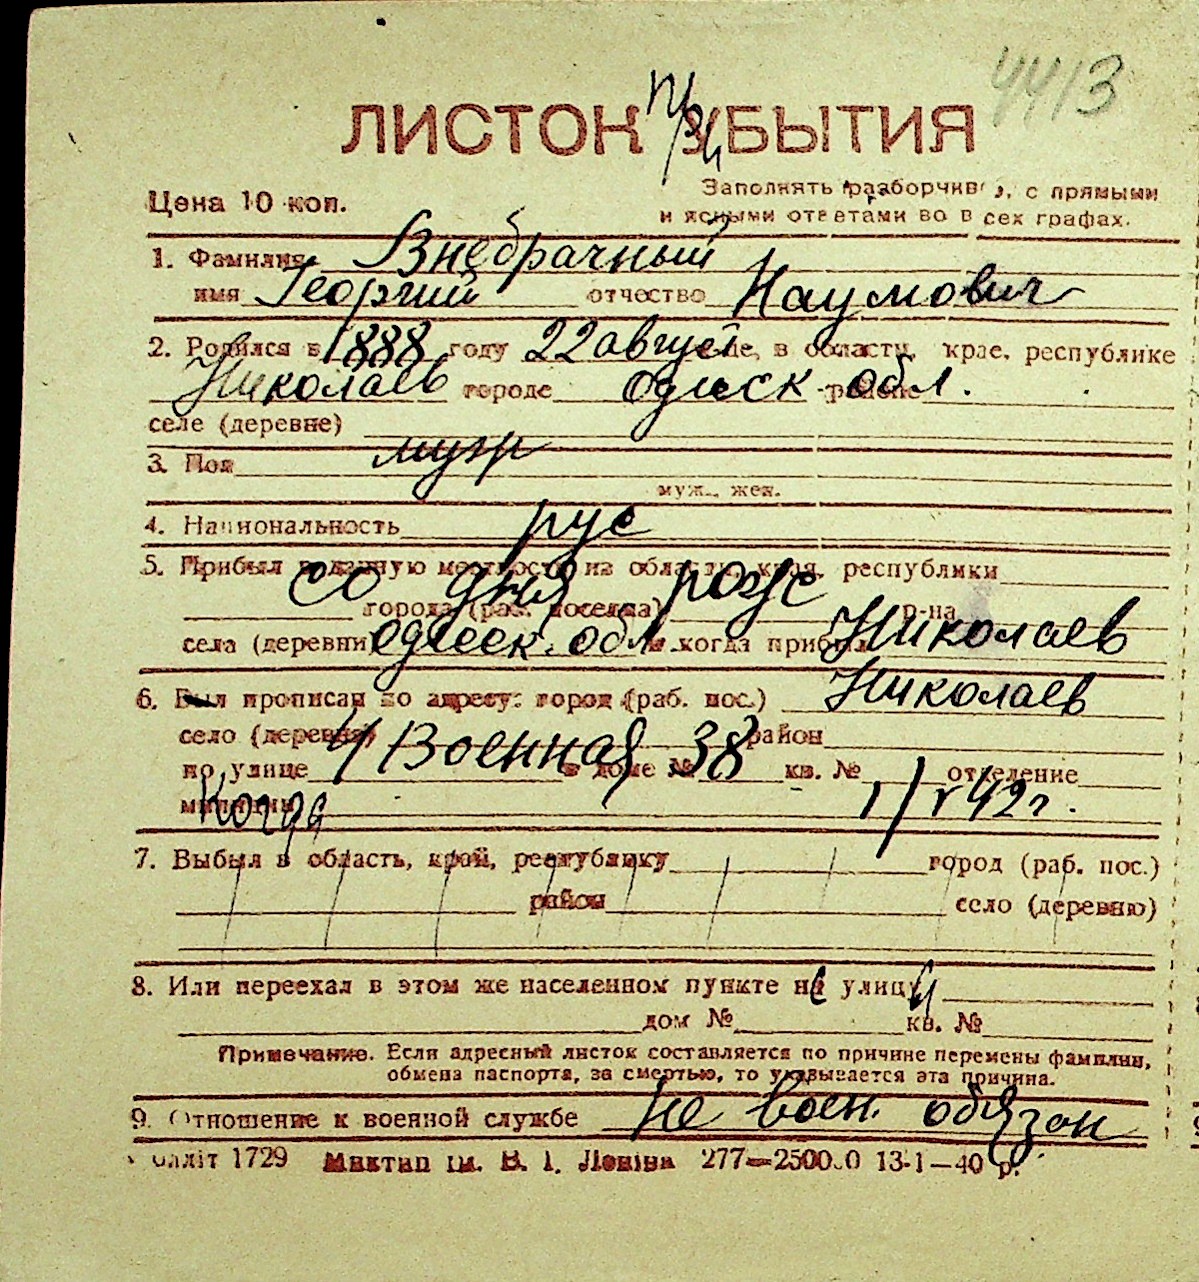 4413
ЛИСТОК УБЫТИЯ
При
Цена 10 коп.
Заполнять разборчиво, с прямыми
и ясными ответами во всех графах.
1. Фамилия Внебрачный
имя Георгий отчество Наумович
2. Родился в 1888 году 22 август м-це, в области, крае, республике
Николаев городе Одесск обл. районе
селе (деревне)
3. Пол муж
муж., жен.
4. Национальность рус
5. Прибыл в данную местность из области, края, республики
со дня рожс
города (раб. поселка) р-на
села (деревни) Одесск. обл. и когда прибыл Николаев
6. Был прописан по адресу: город (раб. пос.) Николаев
село (деревня) район
по улице 4 Военная в доме № 38 кв. № отделение
милиции Когда 1/V 42 г.
7. Выбыл в область, край, республику город (раб. пос.)
район село (деревню)
8. Или переехал в этом же населенном пункте на улицу
дом № кв. №
Примечание. Если адресный листок составляется по причине перемены фамилии,
обмена паспорта, за смертью, то указывается эта причина.
9. Отношение к военной службе не воен. обязан
облліт 1729 Миктип ім. В. І. Леніна 277—250000 13-1—40 р.